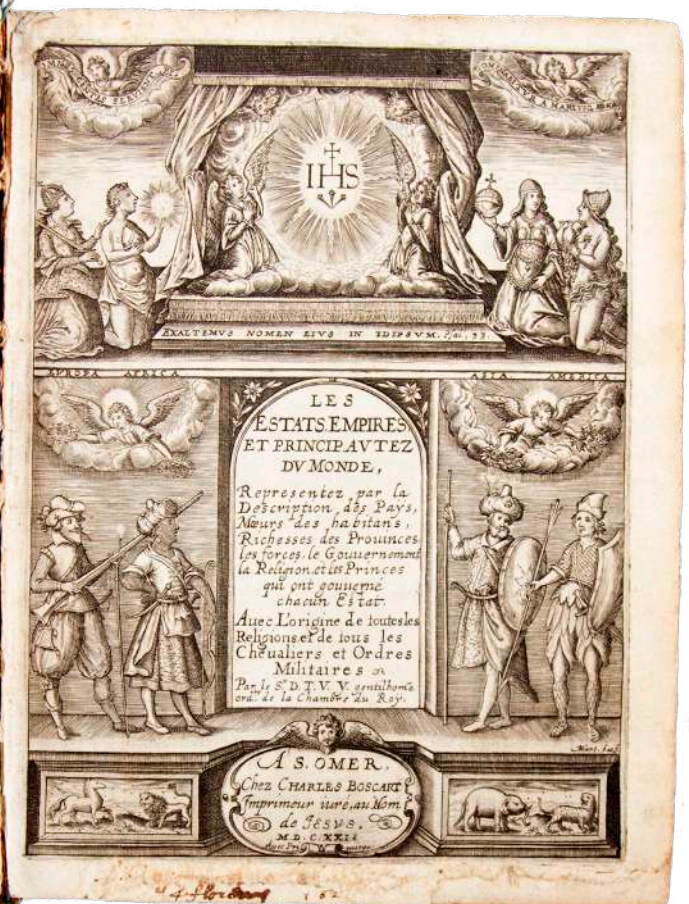 OMNES GENTES SERVIENT EI
DOMINABITUR A MARI USQ. AD MARE
IHS
EXALTEMVS NOMEN EIVS IN IDIPSVM. Psal. 33.
EVROPA AFRICA
ASIA AMERICA
LES
ESTATS, EMPIRES
ET PRINCIPAVTEZ
DV MONDE,
Representez par la
Description des Pays,
Mœurs des habitans,
Richesses des Prouinces
les forces, le Gouuernement
la Religion et les Princes
qui ont gouuerné
chacun Estat.
Auec L'origine de toutes les
Religions et de tous les
Cheualiers et Ordres
Militaires
Par le Sr. D. T. V. Y. gentilhom̃e
ord. de la Chambre du Roy.
Mart. bas f.
A S. OMER,
Chez CHARLES BOSCART
Imprimeur iuré, au Nom
de JESVS.
M D C XXII
4 florens